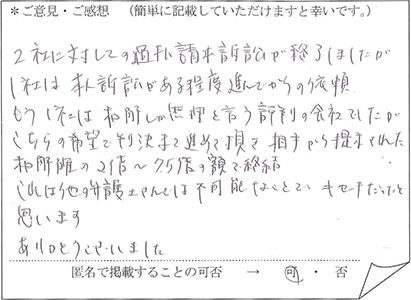 ＊ご意見・ご感想　（簡単に記載していただけますと幸いです。）
2社に対しての過払請求訴訟が終了しましたが
1社は本人訴訟がある程度進んでからの依頼
もう1社は和解しか無理と言う評判の会社でしたが
こちらの希望で判決まで進めて頂き 相手から提案された
和解額の2倍～7.5倍の額で終結
これは他の弁護士さんでは不可能なことで、
だったと
思います
ありがとうございました
匿名で掲載することの可否　→　可　・　否